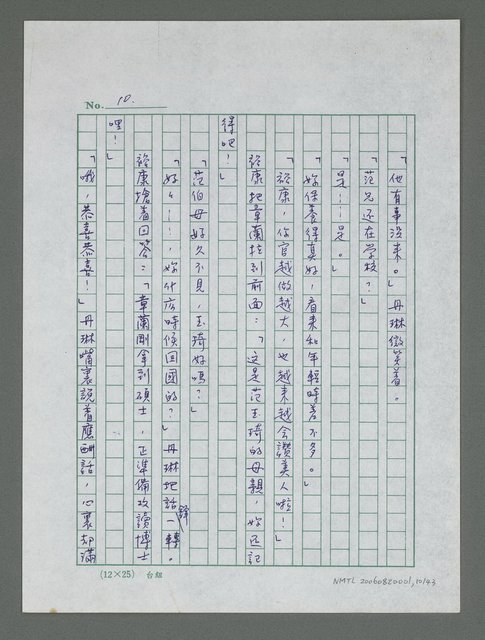 No. 10.
「他有事没来。」丹琳微笑着。
「范兄还在学校？」
「是……是。」
「妳保養得真好，看来和年輕時差不多。」
「詒康，你官越做越大，也越来越会讚美人啦！」
詒康把韋蘭拉到前面：「这是范玉琦的母親，妳还記
得吧！」
「范伯母好久不見，玉琦好嗎？」
「好好……，妳什広時候回國的？」丹琳把話鋒一轉。
詒康搶着回答：「韋蘭剛拿到碩士，正準備攻讀博士
哩！」
「哦，恭喜恭喜！」丹琳嘴裏説着應酬話，心裏却滿
(12×25) 台紐
NMTL 20060820001, 10/43